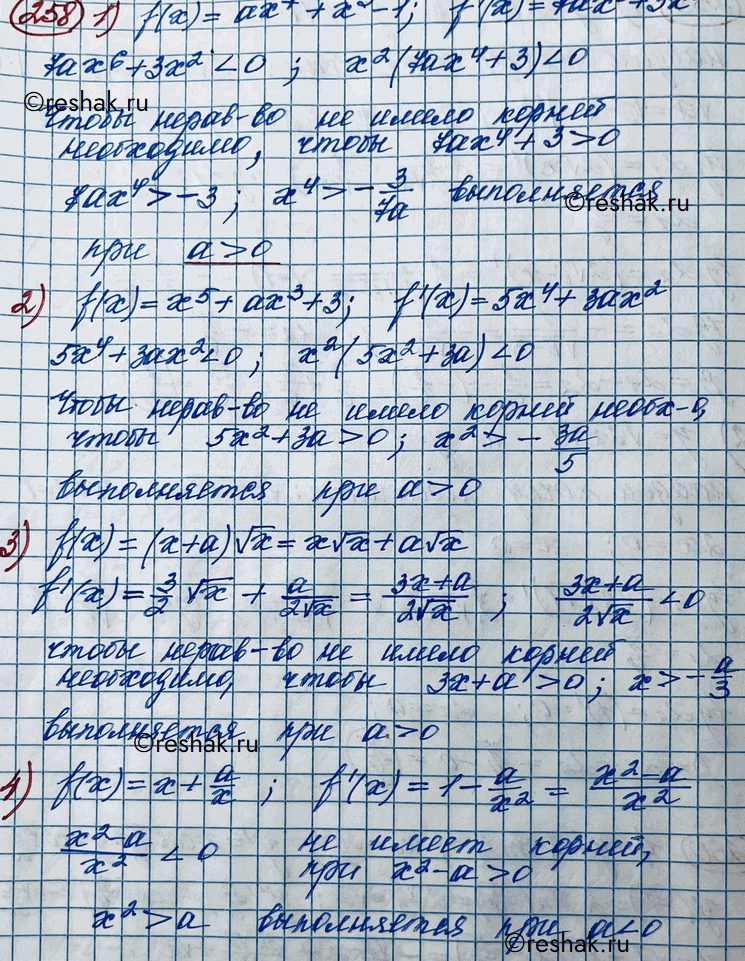 258 1) f(x) = ax⁷ + x³ - 1; f'(x) = 7ax⁶ + 3x²
7ax⁶ + 3x² < 0 ; x² (7ax⁴ + 3) < 0
©reshak.ru
чтобы нерав-во не имело корней
необходимо, чтобы 7ax⁴ + 3 > 0
7ax⁴ > -3 ; x⁴ > - 3/7a выполняется
©reshak.ru
при a > 0
2) f(x) = x⁵ + ax³ + 3; f'(x) = 5x⁴ + 3ax²
5x⁴ + 3ax² < 0 ; x² (5x² + 3a) < 0
чтобы нерав-во не имело корней необх-о,
чтобы 5x² + 3a > 0 ; x² > - 3a/5
выполняется при a > 0
3) f(x) = (x+a)√x = x√x + a√x
f'(x) = 3/2 √x + a/2√x = 3x+a/2√x ; 3x+a/2√x < 0
чтобы нерав-во не имело корней
необходимо, чтобы 3x + a > 0 ; x > - a/3
выполняется при a > 0
©reshak.ru
4) f(x) = x + a/x ; f'(x) = 1 - a/x² = x²-a/x²
x²-a/x² < 0 не имеет корней,
при x² - a > 0
x² > a выполняется при a < 0
©reshak.ru